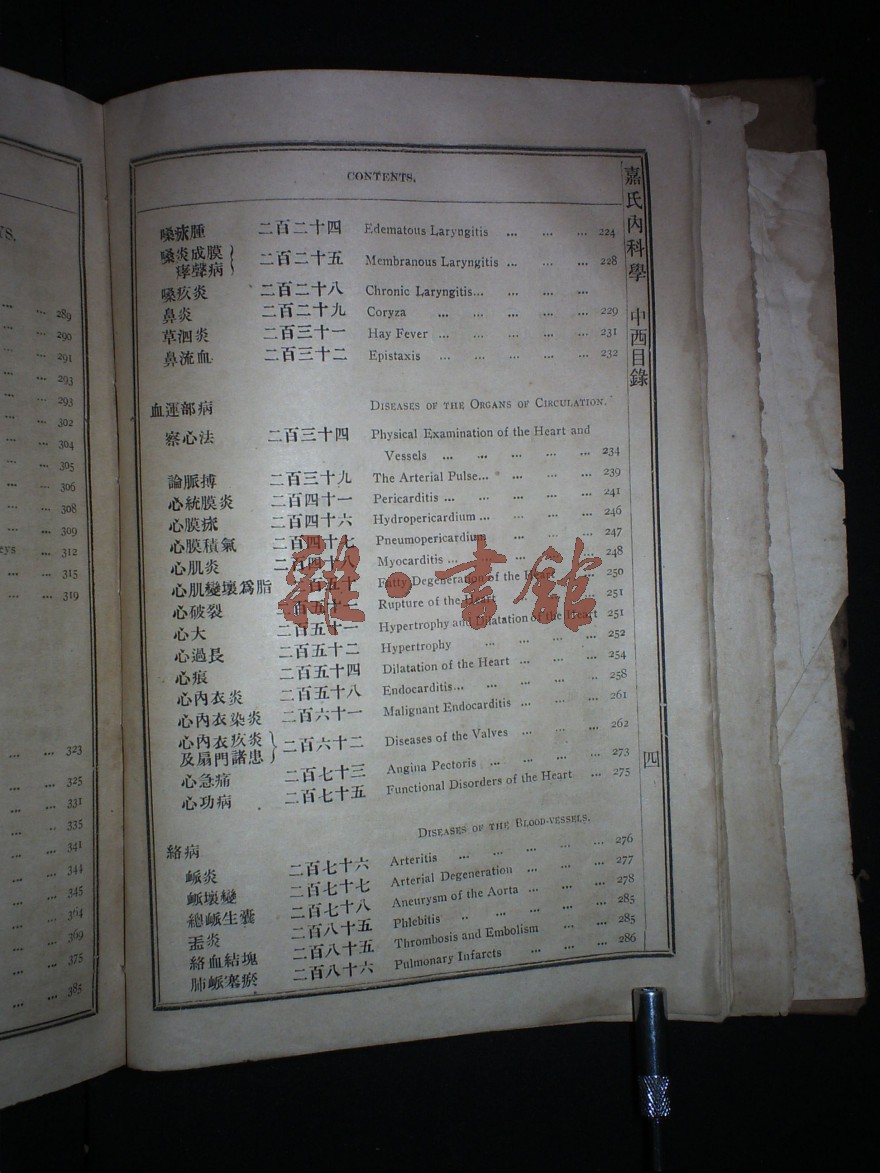 CONTENTS.
嘉氏內科學 中西目錄
四
嗓 腫 二百二十四 Edematous Laryngitis ... ... ... 224
嗓炎成膜 二百二十五 Membranous Laryngitis ... ... ... 228
聲病
嗓疚炎 二百二十八 Chronic Laryngitis... ... ... ...
鼻炎 二百二十九 Coryza ... ... ... ... ... 229
草泗炎 二百三十一 Hay Fever ... ... ... ... ... 231
鼻流血 二百三十二 Epistaxis ... ... ... ... ... 232
血運部病 DISEASES OF THE ORGANS OF CIRCULATION.
察心法 二百三十四 Physical Examination of the Heart and
Vessels ... ... ... ... ... 234
論脈搏 二百三十九 The Arterial Pulse... ... ... ... 239
心統膜炎 二百四十一 Pericarditis ... ... ... ... ... 241
心膜 二百四十六 Hydropericardium ... ... ... ... 246
心膜積氣 二百四十七 Pneumopericardium ... ... ... 247
心肌炎 二百四十八 Myocarditis ... ... ... ... ... 248
心肌變壞爲脂 二百五十 Fatty Degeneration of the Heart ... ... 250
心破裂 二百五十一 Rupture of the Heart ... ... ... 251
心大 二百五十一 Hypertrophy and Dilatation of the Heart 251
心過長 二百五十二 Hypertrophy ... ... ... ... 252
心痕 二百五十四 Dilatation of the Heart ... ... ... 254
心內衣炎 二百五十八 Endocarditis... ... ... ... .. 258
心內衣染炎 二百六十一 Malignant Endocarditis ... ... ... 261
心內衣疚炎 二百六十二 Diseases of the Valves ... ... ... 262
及扇門諸患
心急痛 二百七十三 Angina Pectoris ... ... ... ... 273
心功病 二百七十五 Functional Disorders of the Heart ... 275
絡病 DISEASES OF THE BLOOD-VESSELS.
炎 二百七十六 Arteritis ... ... ... ... ... 276
壞變 二百七十七 Arterial Degeneration ... ... ... 277
總 生囊 二百七十八 Aneurysm of the Aorta ... ... ... 278
炎 二百八十五 Phlebitis .. ... ... ... ... 285
絡血結塊 二百八十五 Thrombosis and Embolism ... ... 285
肺 塞瘀 二百八十六 Pulmonary Infarcts ... ... ... 286
雜·書館
YS.
... ... 289
... ... 290
... ... 291
... ... 293
... ... 293
... ... 302
... ... 304
... ... 305
... ... 306
... ... 308
... ... 309
eys ... 312
... ... 315
... ... 319
... ... 323
... ... 325
... ... 331
... .. 335
... ... 341
... ... 344
... ... 345
... ... 364
... ... 369
... ... 375
... ... 385